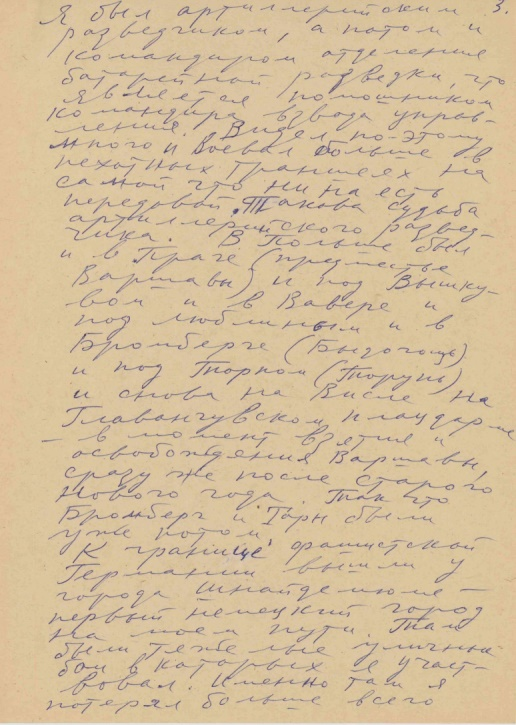 Я был артиллерийским 3.
разведчиком, а потом и
командиром отделения
батарейной разведки, что
является помошником
командира взвода управ-
ления. Видел по-этому
много и воевал больше в
пехотных траншеях на
самой что ни на есть
передовой. Такова судьба
артиллерийского развед-
чика. В Польше был
и в Праге (предместье
Варшавы) и под Вышку-
вом и в Вавере и
под Люблиным и в
Бромберге (Быдгощь)
и под Торном (Торунь)
и снова на Висле на
плацдарме
- в момент взятия и
освобождения Варшавы,
сразу же после старого
Нового года. Так что
Бромберг и Торн были
уже потом.
К границе фашистской
Германии вышли у
города Шнайдемюле -
первый немецкий город
на моем пути. Там
были тяжелые уличные
бои в которых я участ-
вовал. Именно там я
потерял больше всего